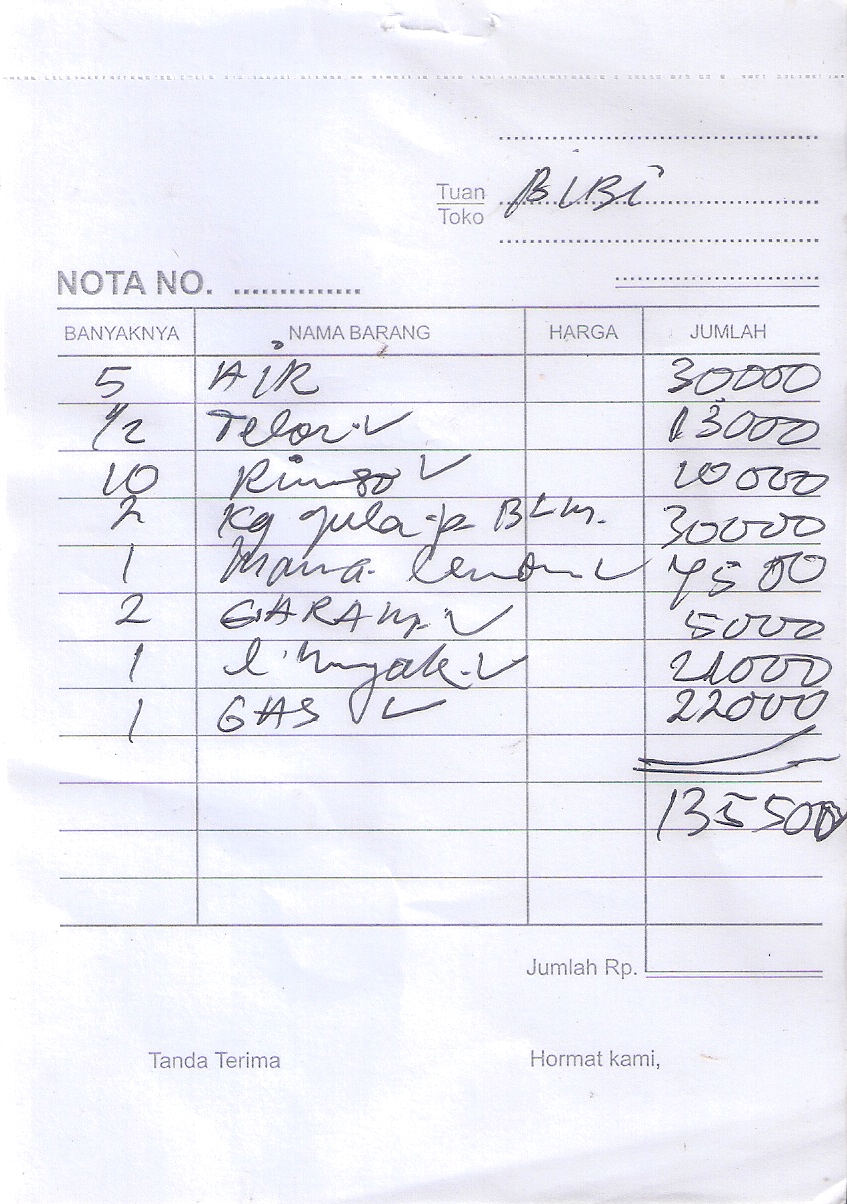 Tuan BIBI
Toko
NOTA NO. ..............
BANYAKNYA NAMA BARANG HARGA JUMLAH
5 AIR 30000
1/2 Telor 13000
10 Rinso 10000
2 Kg gula-p BLM. 30000
1 Mama lemon 4500
2 GARAM 5000
1 l. Minyak 21000
1 GAS 22000
135500
Jumlah Rp.
Tanda Terima Hormat kami,